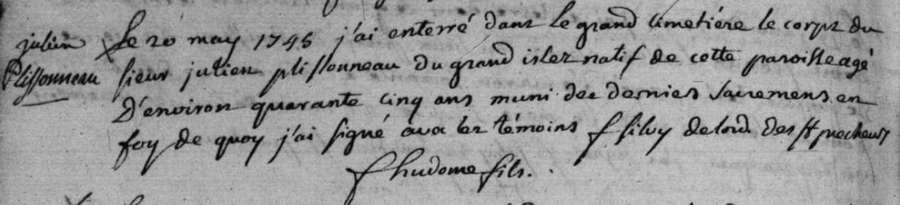 julien Le 20 may 1745 j'ai enterré dans le grand cimetiére le corps du
Plissonneau sieur julien plissonneau du grand islet natif de cette paroisse agé
D'environ quarante cinq ans muni des derniers sacremens en
foy de quoy j'ai signé avec les témoins f silvy de lord. des ff precheurs
f hudome fils.